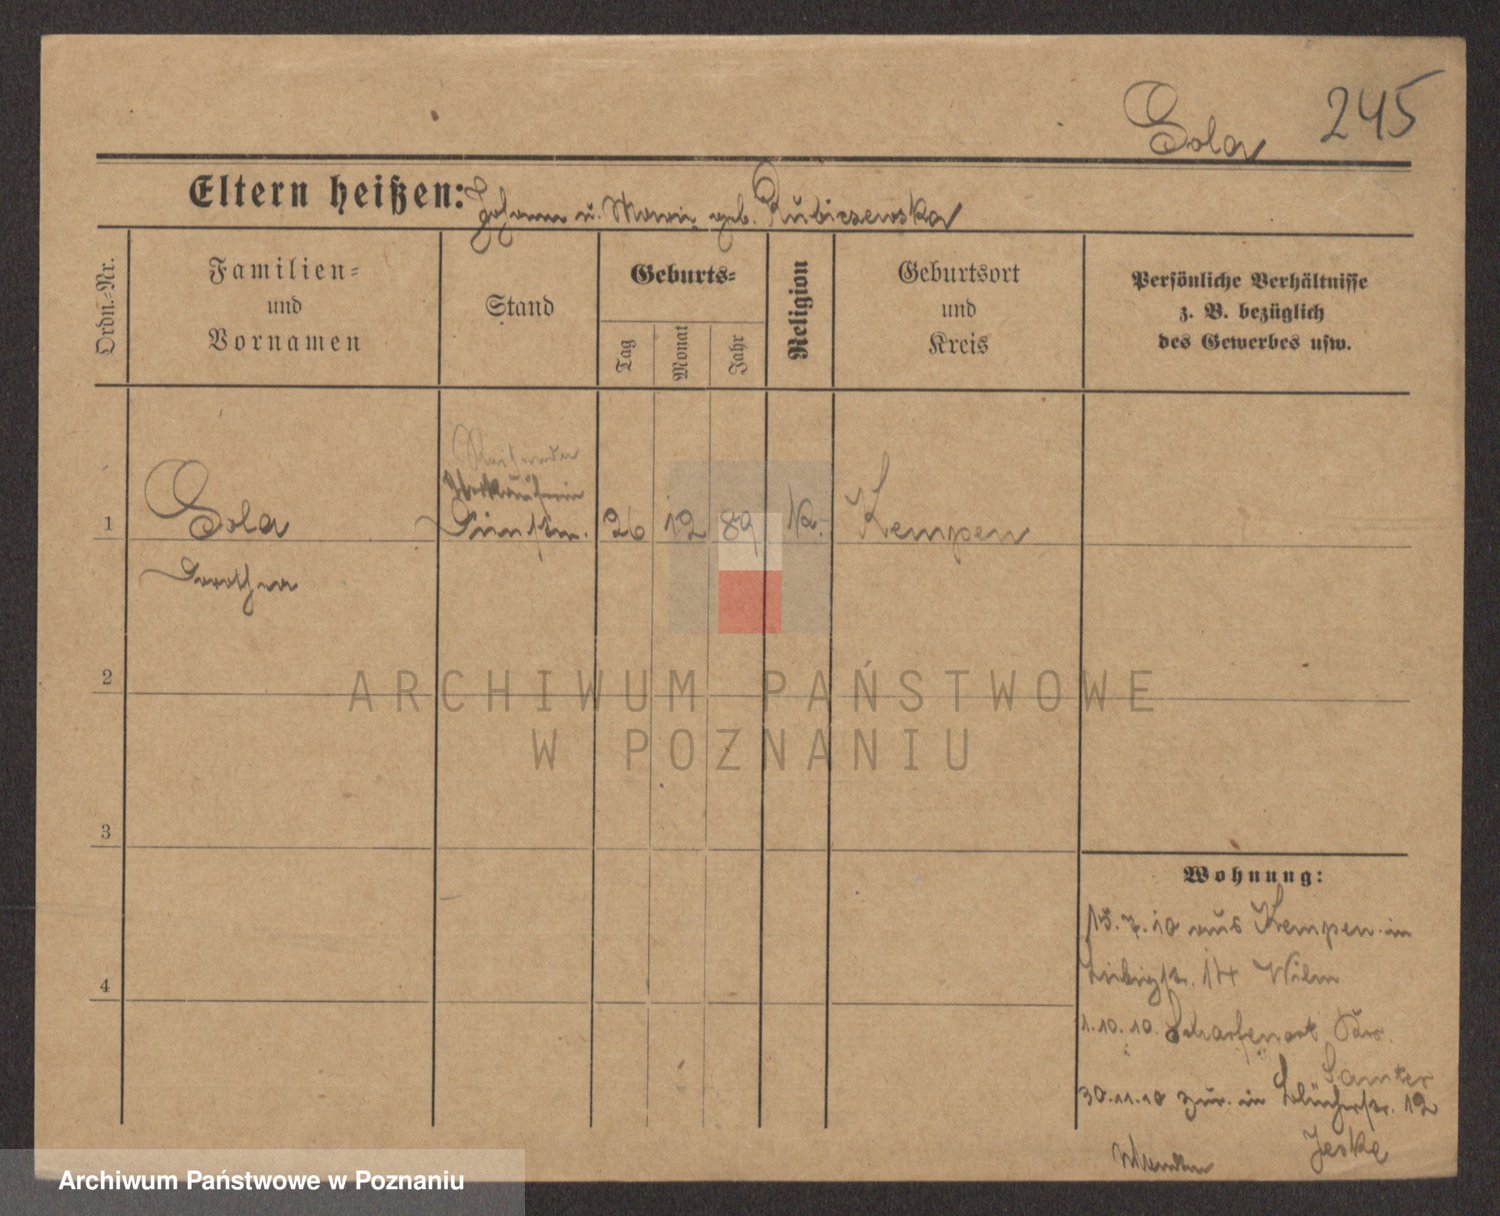 Sola 245
Eltern heißen: Johann u. Marie geb. Rubiszewska
Ordn.-Nr.
Familien-
und
Vornamen
Stand
Geburts-
Tag
Monat
Jahr
Religion
Geburtsort
und
Kreis
Persönliche Verhältnisse
z. B. bezüglich
des Gewerbes usw.
Verkäuferin
1 Sola Dienstm. 26 12 89 k. Kempen
Dorothea
2
3
4
Wohnung:
15.7.10 aus Kempen in
14 Wilm
1.10.10. Scharfenort Krs.
Samter
30.11.10 zur. in Blücherstr. 12
Jeske
ARCHIWUM PAŃSTWOWE
W POZNANIU
Archiwum Państwowe w Poznaniu